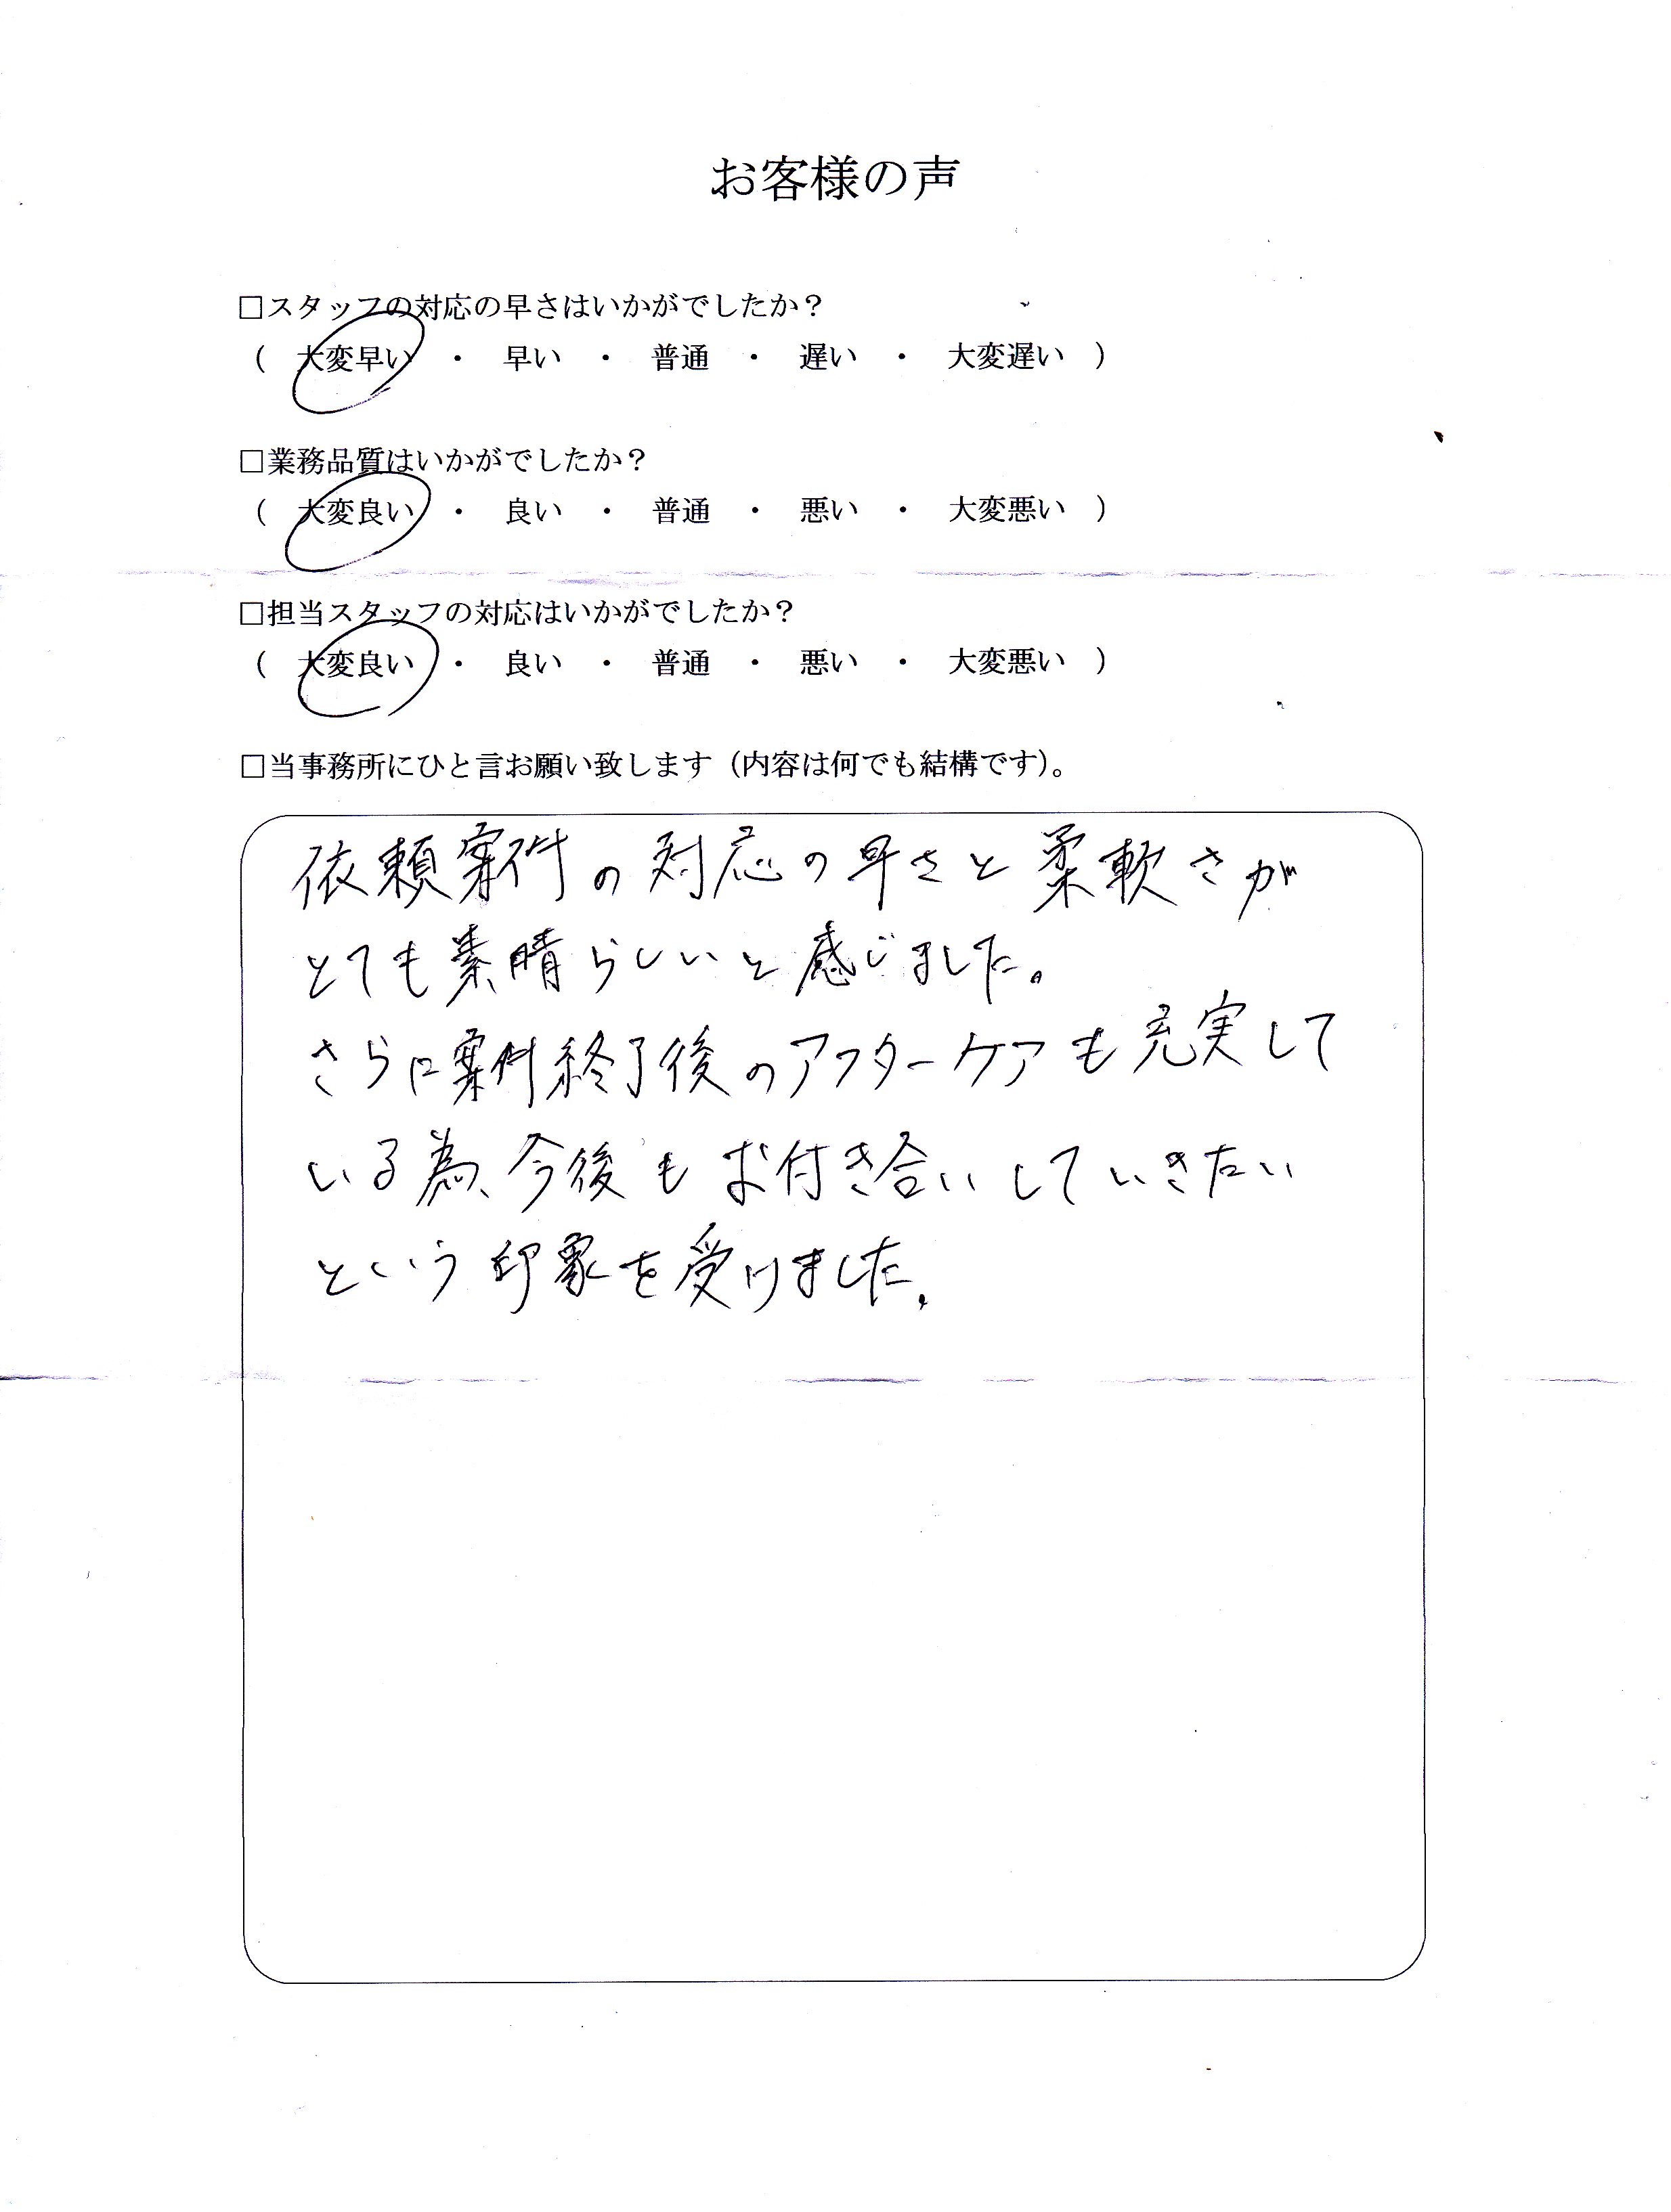 お客様の声
□スタッフの対応の早さはいかがでしたか？
（　大変早い　・　早い　・　普通　・　遅い　・　大変遅い　）
□業務品質はいかがでしたか？
（　大変良い　・　良い　・　普通　・　悪い　・　大変悪い　）
□担当スタッフの対応はいかがでしたか？
（　大変良い　・　良い　・　普通　・　悪い　・　大変悪い　）
□当事務所にひと言お願い致します（内容は何でも結構です）。
依頼案件の対応の早さと柔軟さが
とても素晴らしいと感じました。
さらに案件終了後のアフターケアも充実して
いる為、今後もお付き合いしていきたい
という印象を受けました。